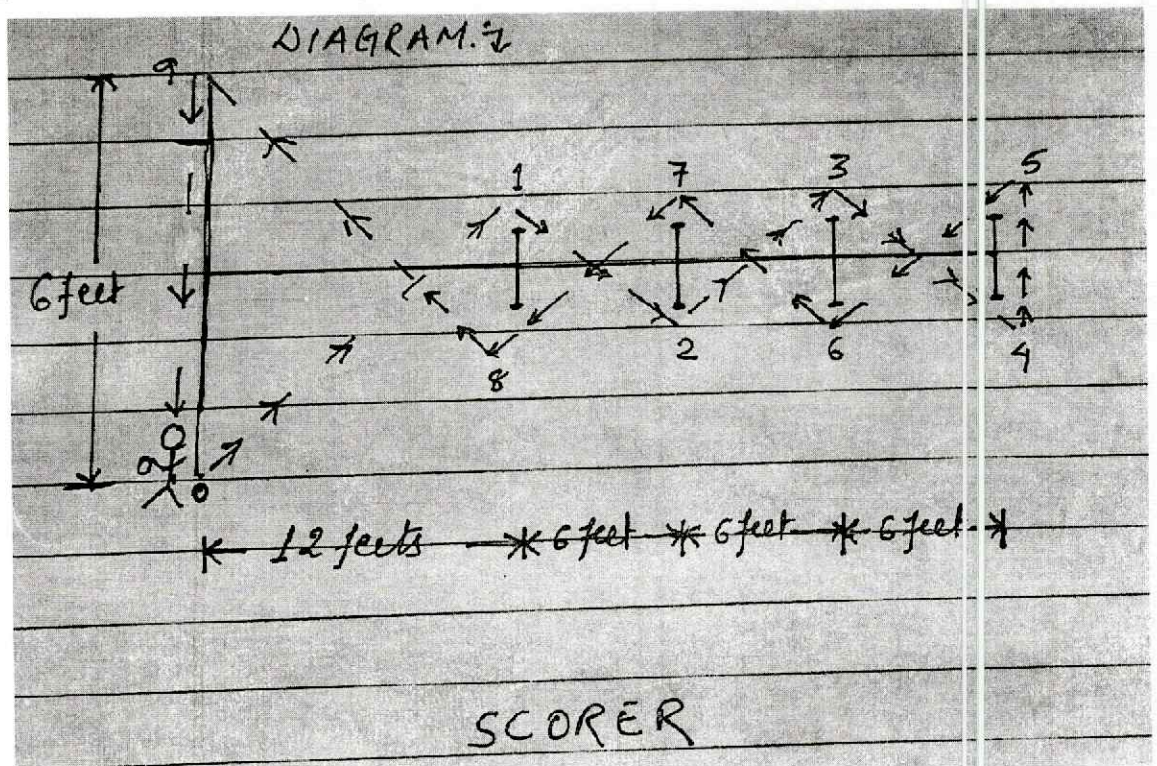 DIAGRAM.1
9
1 7 3 5
6 feet
8 2 6 4
12 feets 6 feet 6 feet 6 feet
SCORER